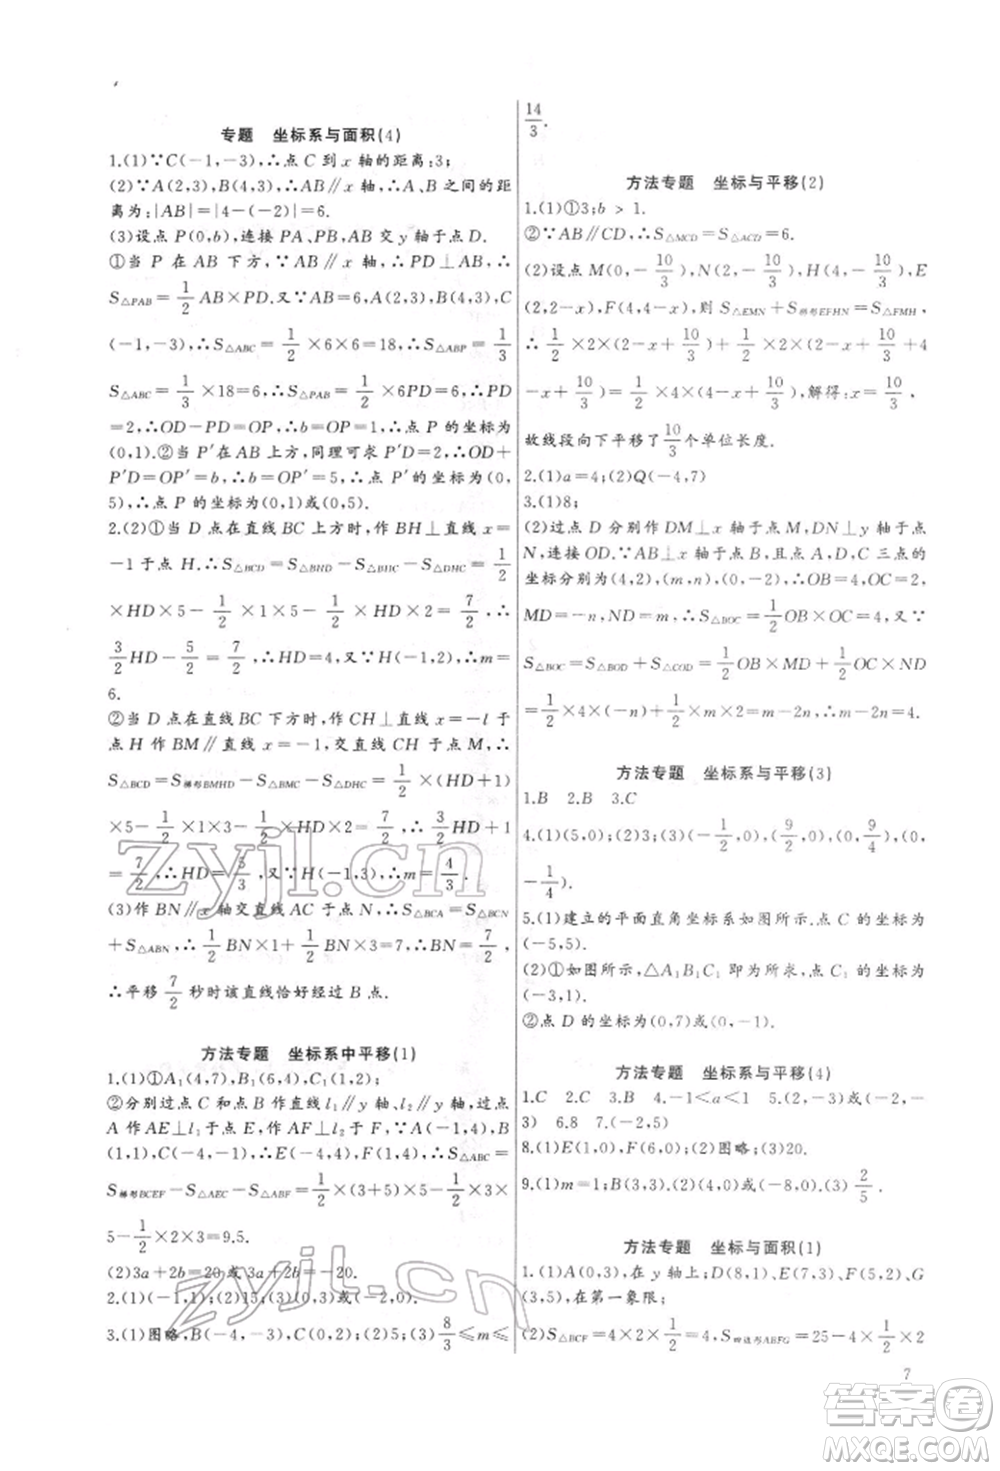 专题　坐标系与面积(4)
1.(1)∵C(-1,-3),∴点 C 到 x 轴的距离:3;
(2)∵A(2,3),B(4,3),∴AB∥x 轴,∴A、B 之间的距
离为:|AB|=|4-(-2)|=6.
(3)设点 P(0,b),连接 PA、PB,AB 交 y 轴于点 D.
①当 P 在 AB 下方,∵AB∥x 轴,∴PD⊥AB,∴
S△PAB=1/2 AB×PD.又∵AB=6,A(2,3),B(4,3),C
(-1,-3),∴S△ABC=1/2×6×6=18,∴S△ABP=1/3
S△ABC=1/3×18=6,∴S△PAB=1/2×6PD=6,∴PD
=2,∴OD-PD=OP,∴b=OP=1,∴点 P 的坐标为
(0,1).②当 P′在 AB 上方,同理可求 P′D=2,∴OD+
P′D=OP′=5,∴b=OP′=5,∴点 P′的坐标为(0,
5),∴点 P 的坐标为(0,1)或(0,5).
2.(2)①当 D 点在直线 BC 上方时,作 BH⊥直线 x=
-1 于点 H,∵S△BCD=S△BHD-S△DHC=7/2,∴1/2
×HD×5-1/2×1×5-1/2×HD×2=7/2,∴
3/2HD-5/2=7/2,∴HD=4,又∵H(-1,2),∴m=
6.
②当 D 点在直线 BC 下方时,作 CH⊥直线 x=-l 于
点 H 作 BM∥直线 x=-1,交直线 CH 于点 M,∴
S△BCD=S梯形BMHD-S△BMC-S△DHC=1/2×(HD+1)
×5-1/2×1×3-1/2×HD×2=7/2,∴3/2HD+1
=7/2,∴HD=5/3,又∵H(-1,-3),∴m=4/3.
(3)作 BN∥x 轴交直线 AC 于点 N,∴S△BCA=S△BCN
+S△ABN,∴1/2BN×1+1/2BN×3=7,∴BN=7/2,
∴平移7/2秒时该直线恰好经过 B 点.
方法专题　坐标系中平移(1)
1.(1)①A₁(4,7),B₁(6,4),C₁(1,2);
②分别过点 C 和点 B 作直线 l₁∥y 轴,l₂∥y 轴,过点
A 作 AE⊥l₁于点 E,作 AF⊥l₂于点 F,∵A(-1,4),B
(1,1),C(-4,-1),∴E(-4,4),F(1,4),∴S△ABC=
S梯形BCEF-S△AEC-S△ABF=1/2×(3+5)×5-1/2×3×
5-1/2×2×3=9.5.
(2)3a+2b=20或3a+2b=-20.
2.(1)(-1,1);(2)15,(3)(0,4)或(-2,0).
3.(1)图略,B(-4,-3),C(0,2)(2)5;(3)8/3≤m≤
14/3.
方法专题　坐标与平移(2)
1.(1)①3;b > 1.
②∵AB∥CD,∴S△MCD=S△ACD=6.
(2)设点 M(0,-10/3),N(2,-10/3),H(4,-10/3),E
(2,2-x),F(4,4-x),则 S△EMN+S梯形EFHN=S△FMH,
∴1/2×2×(2-x+10/3)+1/2×2×(2-x+10/3+4
-x+10/3)=1/2×4×(4-x+10/3),解得:x=10/3.
故线段向下平移了10/3个单位长度.
2.(1)a=4;(2)Q(-4,7)
3.(1)8;
(2)过点 D 分别作 DM⊥x 轴于点 M,DN⊥y 轴于点
N,连接 OD.∵AB⊥x 轴于点 B,且点 A,D,C 三点的
坐标分别为(4,2),(m,n),(0,-2),∴OB=4,OC=2,
MD=-n,ND=m,∴S△BOC=1/2OB×OC=4,又∵
S△BOC=S△BOD+S△COD=1/2OB×MD+1/2OC×ND
=1/2×4×(-n)+1/2×m×2=m-2n,∴m-2n=4.
方法专题　坐标系与平移(3)
1.B　2.B　3.C
4.(1)(5,0);(2)3;(3)(-1/2,0),(9/2,0),(0,9/4),(0,
-1/4).
5.(1)建立的平面直角坐标系如图所示.点 C 的坐标为
(-5,5).
(2)①如图所示,△A₁B₁C₁ 即为所求,点 C₁ 的坐标为
(-3,1).
②点 D 的坐标为(0,7)或(0,-1).
方法专题　坐标系与平移(4)
1.C　2.C　3.B　4.-1＜a＜1　5.(-2,-
3)　6.8　7.(-2,5)
8.(1)E(1,0),F(6,0);(2)图略;(3)20.
9.(1)m=1;B(3,3).(2)(4,0)或(-8,0).(3)2/5.
方法专题　坐标与面积(1)
1.(1)A(0,3),在 y 轴上;D(8,1),E(7,3),F(5,2),G
(3,5),在第一象限;
(2)S△BCF=5×4×1/2=10,S四边形ABFG=25-4×1/2×2
7
答案卷
MXQE.COM
zyjl.cn
zyjl.cn